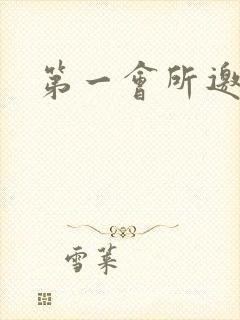 第一會所邀
雪菜